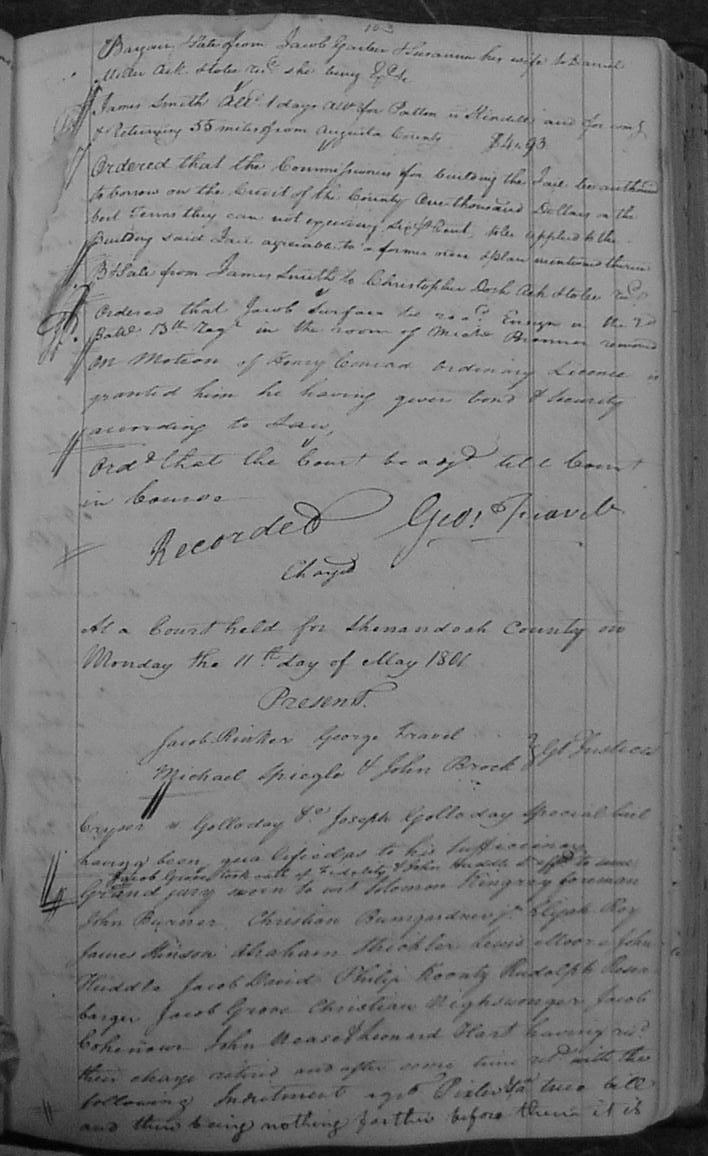 103
Bargain & Sale from Jacob Garber & Susanna his wife to Daniel
Miller Ack. & to be recd. she being
James Smith All.d 1 days att.e for Patton vs Kindell and for com.g
& Returning 55 miles from Augusta County $4.93
Ordered that the Commissioners for building the Jail be authorised
to borrow on the Credit of the County One thousand Dollars on the
best Terms they can not exceeding Six pr Cent, to be applied to the
Building said Jail agreeable to a former order & plan mentioned therein
B & Sale from James Smith to Christopher Dosh Ack & to be rec.d
Ordered that Jacob Surface be Ensign in the 2d
Batt.n 13th Reg.t in the room of removed
On Motion of Henry Conrad Ordinary Licence is
granted him he having given bond & Security
according to Law,
Ord.d that the Court be adj.d till Court
in Course
Recorded Geo: Fravel
Charg.d
At a Court held for Shenandoah County on
Monday the 11th day of May 1801
Present.
Jacob Rinker George Fravel
Michael Spiegle & John Brock } Gt Justices
Cryser vs Golloday Joseph Golloday Special bail
having been qualified as to his Sufficiency
Jacob Grove took oath of Fidelity & John Huddle to same
Grand jury sworn to wit Solomon Kingrey foreman
John Burner Christian Bumgardner jr. Elijah Roy
James Hinson Abraham Stickler Lewis Moore John
Huddle Jacob David Philip Koontz Rudolph Rosen
barger Jacob Grove Christian Nighswonger Jacob
Cohenour John Mease & Leonard Hart having rec.d
their charge retired and after some time ret.d with the
following Indictment ag.t Pixler a true bill
and there being nothing farther before them it is